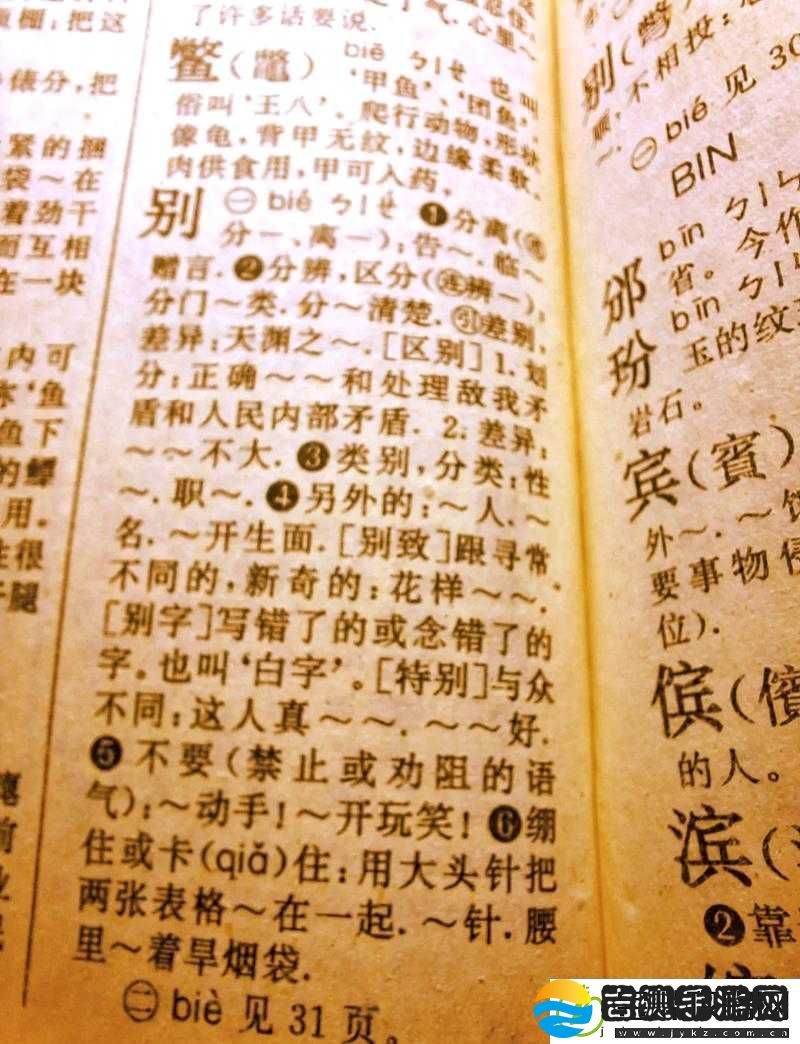 棚；把这
俵分，把
紧的捆
袋～在
着劲干
而互相
在一块
内可
'鱼
鱼下
的鳔
用。
很
腿
了许多话要说.
鳖(鼈) biē ㄅㄧㄝ 也叫
'甲鱼'、'团鱼'，
俗叫'王八'. 爬行动物，形状
像龟，背甲无纹，边缘柔软.
肉供食用，甲可入药。
别 ㊀ bié ㄅㄧㄝˊ ❶分离(㊣
分一、离一)：告～. 临～
赠言. ❷分辨，区分(㊣辨一)：
分门～类. 分～清楚. ㊁差别，
差异：天渊之～. [区别] 1. 划
分：正确～～和处理敌我矛
盾和人民内部矛盾. 2. 差异：
～～不大. ❸类别，分类：性
～. 职～. ❹另外的：～人. ～
名. ～开生面. [别致]跟寻常
不同的，新奇的：花样～～.
[别字]写错了的或念错了的
字。也叫'白字'。[特别]与众
不同：这人真～～. ～～好.
❺不要(禁止或劝阻的语
气)：～动手！～开玩笑！❻绷
住或卡(qiǎ)住：用大头针把
两张表格～在一起. ～针. 腰
里～着旱烟袋.
㊁ biè 见 31 页。
别(彆)
不相投：
㊀ bié 见 30
BIN
邠 bīn ㄅㄧㄣ
省。今作
玢 bīn ㄅㄧㄣ
玉的纹
岩石。
宾(賓)
外～. ～馆
要事物
位).
傧(儐)
的人。
滨(
❷靠
www.jykz.com.cn